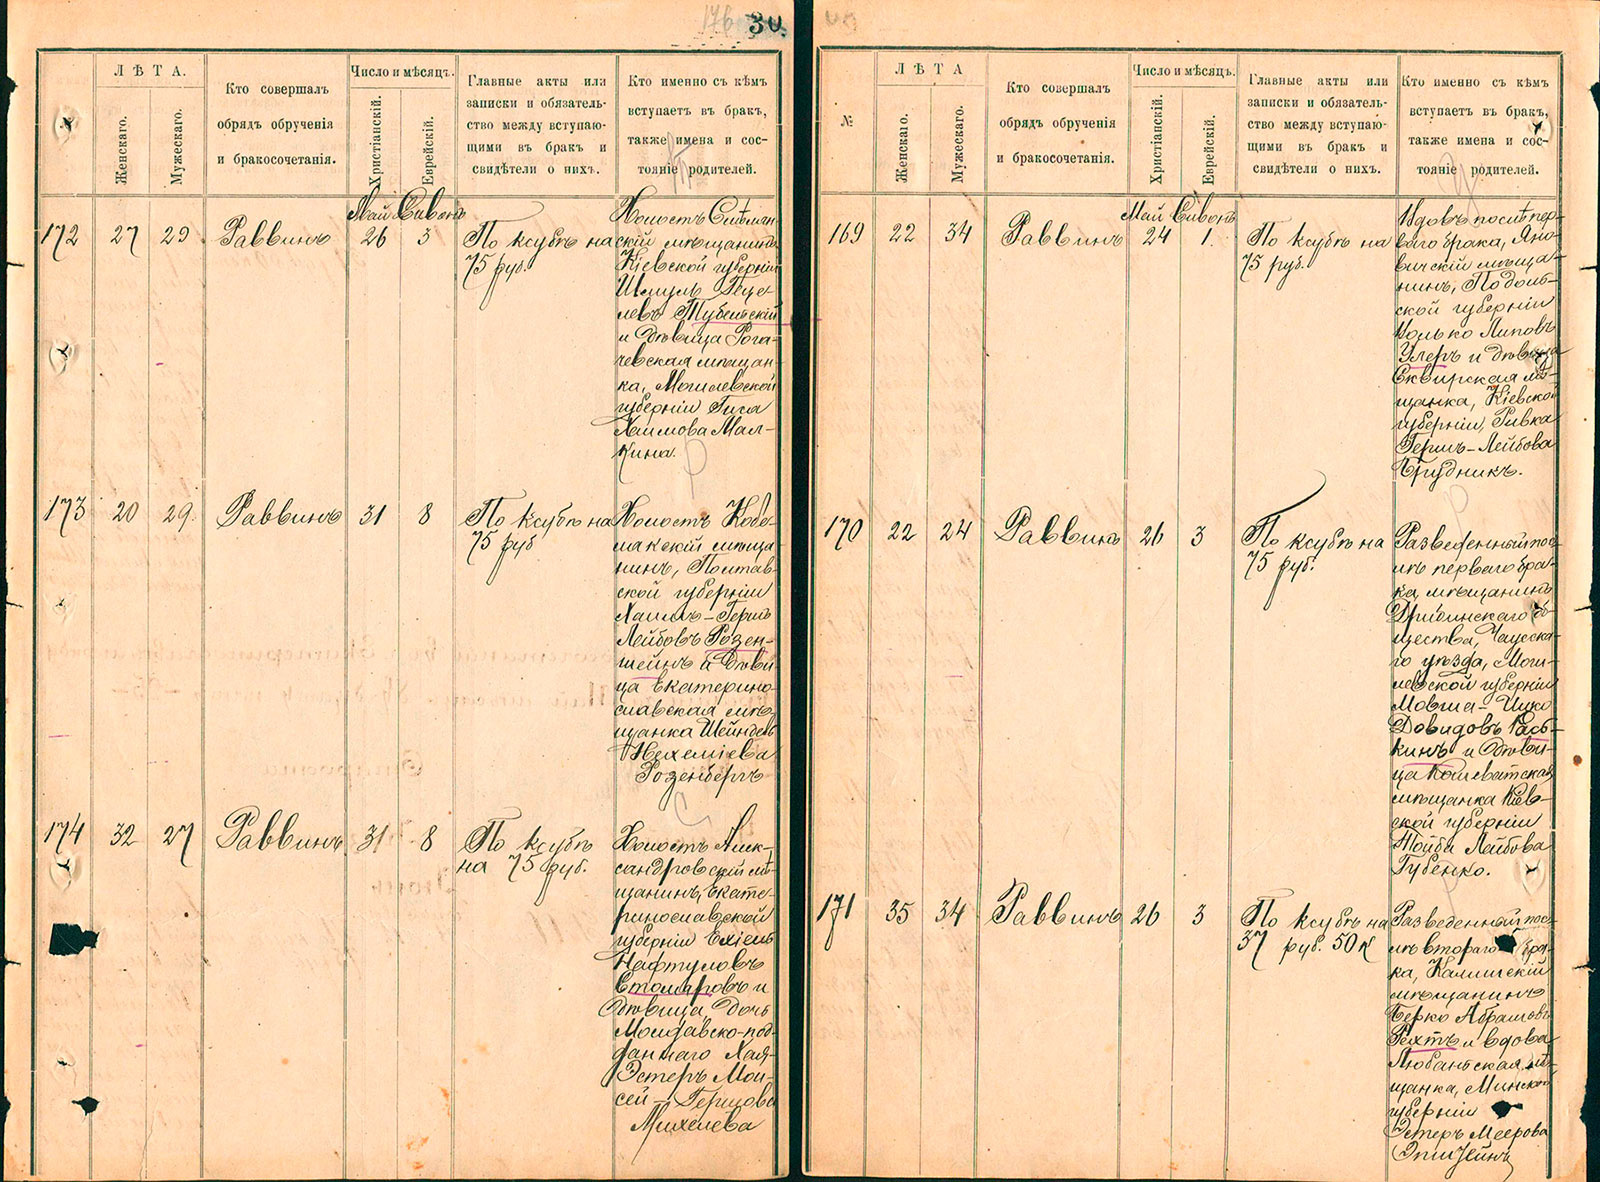 176 30.
ЛѢТА.
Женскаго.
Мужескаго.
Кто совершалъ
обрядъ обрученія
и бракосочетанія.
Число и мѣсяцъ.
Христіанскій.
Еврейскій.
Главные акты или
записки и обязатель-
ство между вступаю-
щими въ бракъ и
свидѣтели о нихъ.
Кто именно съ кѣмъ
вступаетъ въ бракъ,
также имена и сос-
тояніе родителей.
Май Сивонъ
172 27 29 Раввинъ 26 3
По ксубѣ на
75 руб.
Холостъ
скій мѣщанинъ
Кіевской губерніи
Шмуль Геце-
левъ
и дѣвица Рога-
чевская мѣщан-
ка, Могилевской
губерніи Гися
Хаимова Мал-
кина.
173 20 29. Раввинъ 31 8
По ксубѣ на
75 руб
Холостъ Кобе-
лякскій мѣща
нинъ, Полтав-
ской губерніи
Хаимъ-Гершъ
Лейбовъ Розен-
шейнъ и дѣви
ца Екатерино-
славская мѣ-
щанка Шейндель
Нехеміева
Розенбергъ
174 32 27 Раввинъ 31 8
По ксубѣ
на 75 руб.
Холостъ Алек-
сандровскій мѣ
щанинъ, Екате-
ринославской
губерніи Ехіель
Нафтуловъ
Столяровъ и
дѣвица, дочь
Молдавско-под-
даннаго Хая-
Эстеръ Мои-
сей-Герцова
Михелева
№
ЛѢТА
Женскаго.
Мужескаго.
Кто совершалъ
обрядъ обрученія
и бракосочетанія.
Число и мѣсяцъ.
Христіанскій.
Еврейскій.
Главные акты или
записки и обязатель-
ство между вступаю-
щими въ бракъ и
свидѣтели о нихъ.
Кто именно съ кѣмъ
вступаетъ въ бракъ,
также имена и сос-
тояніе родителей.
Май Сивонъ
169 22 34 Раввинъ 24 1.
По ксубѣ на
75 руб.
Вдовъ послѣ пер-
ваго брака, Яно-
вичскій мѣща-
нинъ, Подоль-
ской губерніи
Іолько Липовъ
Уллеръ и дѣвица
Сквирская мѣ-
щанка, Кіевской
губерніи, Ривка
Гершъ-Лейбова
Брудникъ.
170 22 24 Раввинъ 26 3
По ксубѣ на
75 руб.
Разведенный пос-
лѣ перваго бра-
ка, мѣщанинъ
Дрибинскаго об-
щества, Чаусска-
го уѣзда, Моги-
левской губерніи
Мовша-Ицко
Довидовъ Рась-
кинъ и дѣви-
ца Кошеватская
мѣщанка Кіев-
ской губерніи
Тойба Лейбова
Губенко.
171 35 34 Раввинъ 26 3
По ксубѣ на
37 руб. 50 к
Разведенный пос-
лѣ второго бра-
ка, Калишскій
мѣщанинъ
Берко Абрамовъ
Рехтъ и вдова
Любаньская мѣ-
щанка, Минской
губерніи
Эстеръ Меерова
Эпштейнъ